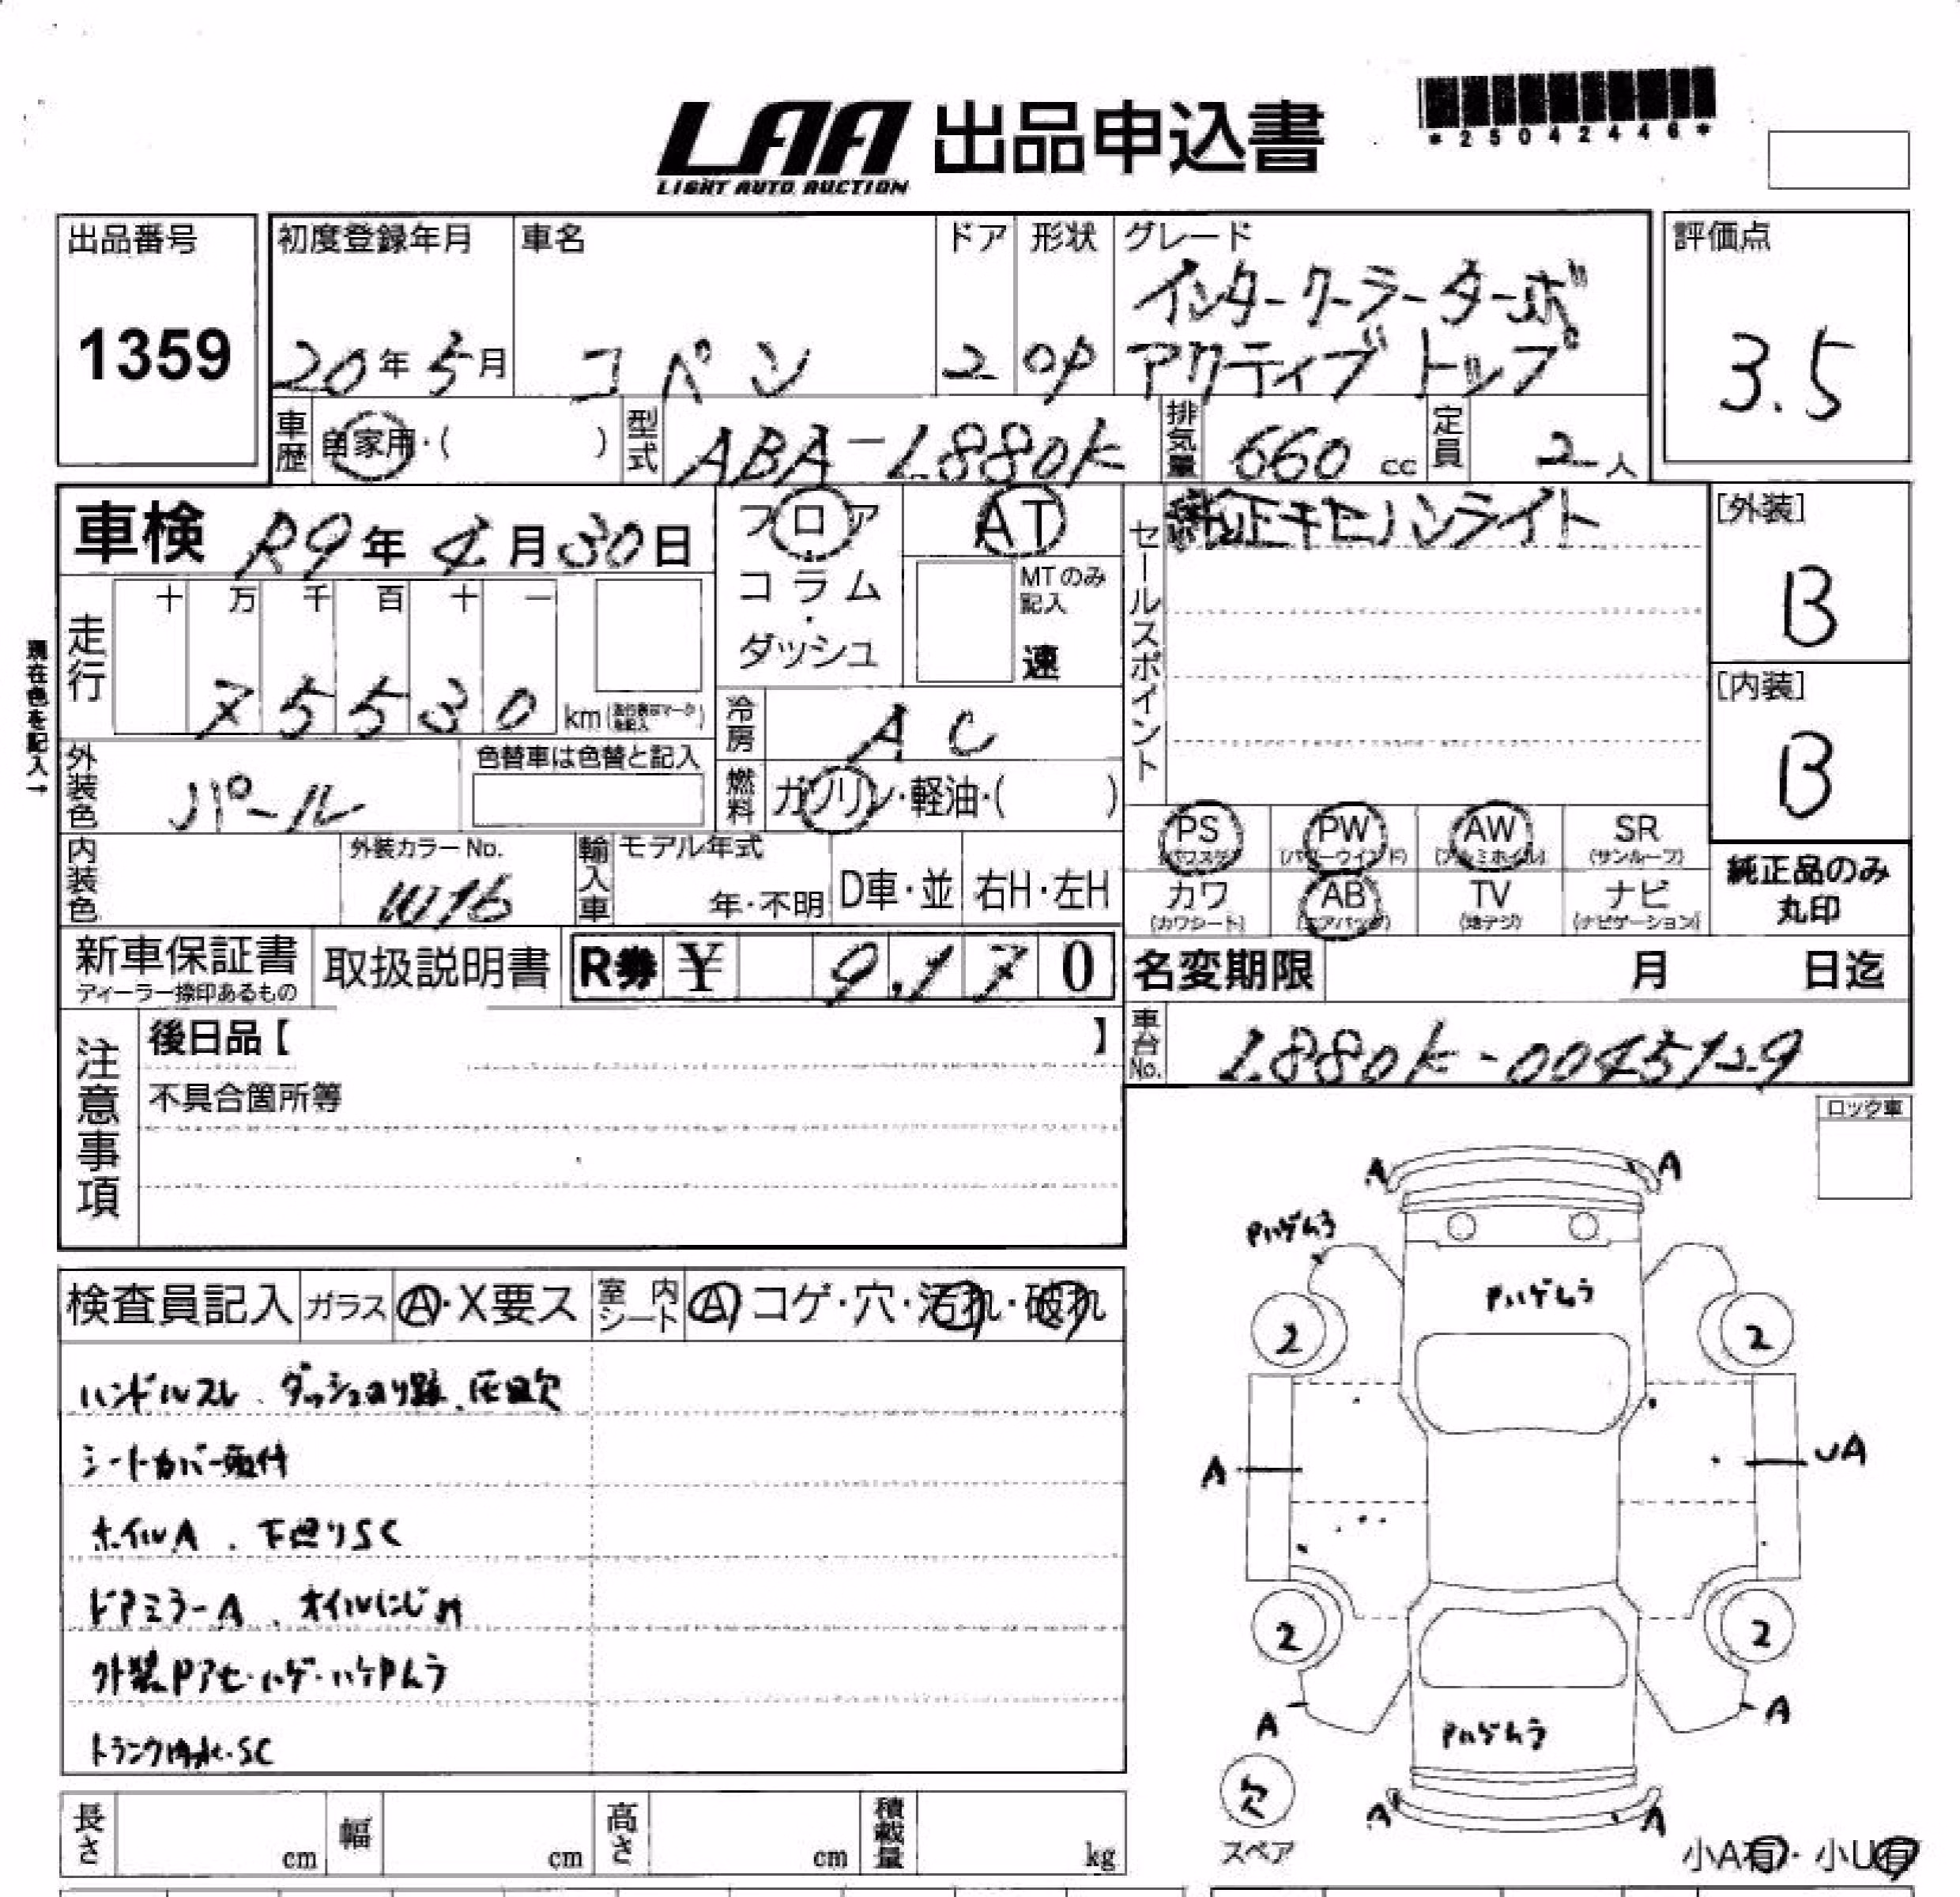 LAA 出品申込書
LIGHT AUTO AUCTION
*25042446*
出品番号
1359
初度登録年月
20年5月
車名
コペン
ドア
2
形状
OP
グレード
インタークーラーターボ
アクティブトップ
評価点
3.5
車歴 自家用・( )
型式 ABA-L880K
排気量 660 cc
定員 2人
車検 R9年4月30日
フロア
コラム
・
ダッシュ
AT
MTのみ
記入
速
セールスポイント
純正キセノンライト
[外装]
B
[内装]
B
現在色を記入→
走行
十 万 千 百 十 一
7 5 5 3 0 km
冷房 AC
外装色 パール
色替車は色替と記入
燃料 ガソリン・軽油・( )
内装色
外装カラーNo.
W16
輸入車
モデル年式
年・不明
D車・並
右H・左H
PS (パワステ)
PW (パワーウインド)
AW (アルミホイル)
SR (サンルーフ)
カワ (カワシート)
AB (エアバッグ)
TV (地デジ)
ナビ (ナビゲーション)
純正品のみ
丸印
新車保証書
ディーラー捺印あるもの
取扱説明書
R券 ¥ 9,170
名変期限 月 日迄
注意事項
後日品【 】
不具合箇所等
車台No. L880K-0045129
ロック車
検査員記入
ガラス A・X要ス
室内シート A コゲ・穴・汚れ・破れ
ハンドルスレ、ダッシュのり跡、灰皿欠
シートカバー取付
ホイルA、下廻りSC
ドアミラーA、オイルにじみ
外装Pアセ・ハゲ・ハケPムラ
トランク内水・SC
A A
Pハゲムラ
Pハゲムラ
2 2
A UA
2 2
A A
Pハゲムラ
欠
スペア
A A
小A有・小U有
長さ cm
幅 cm
高さ cm
積載量 kg